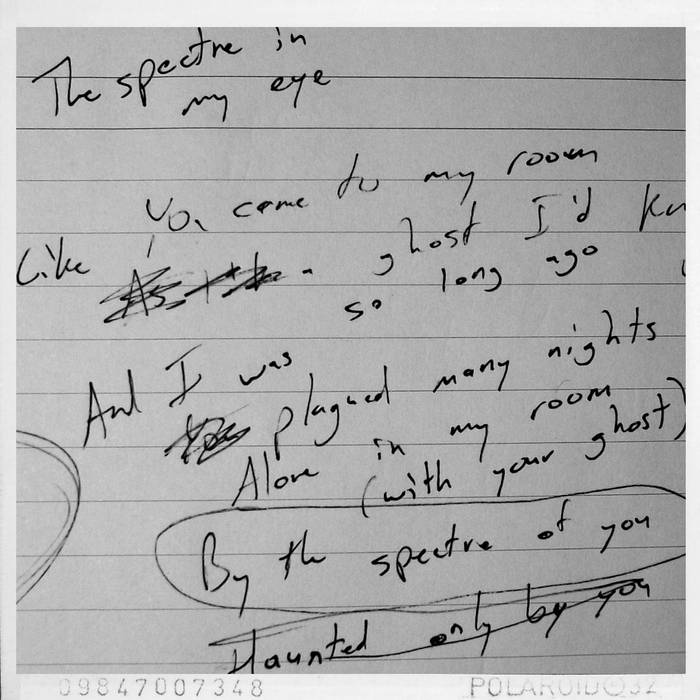 The spectre in
my eye
You came to my room
Like a ghost I'd
so long ago
And I was
plagued many nights
Alone in my room
(with your ghost)
By the spectre of you
Haunted only by you
09847007348
POLAROID